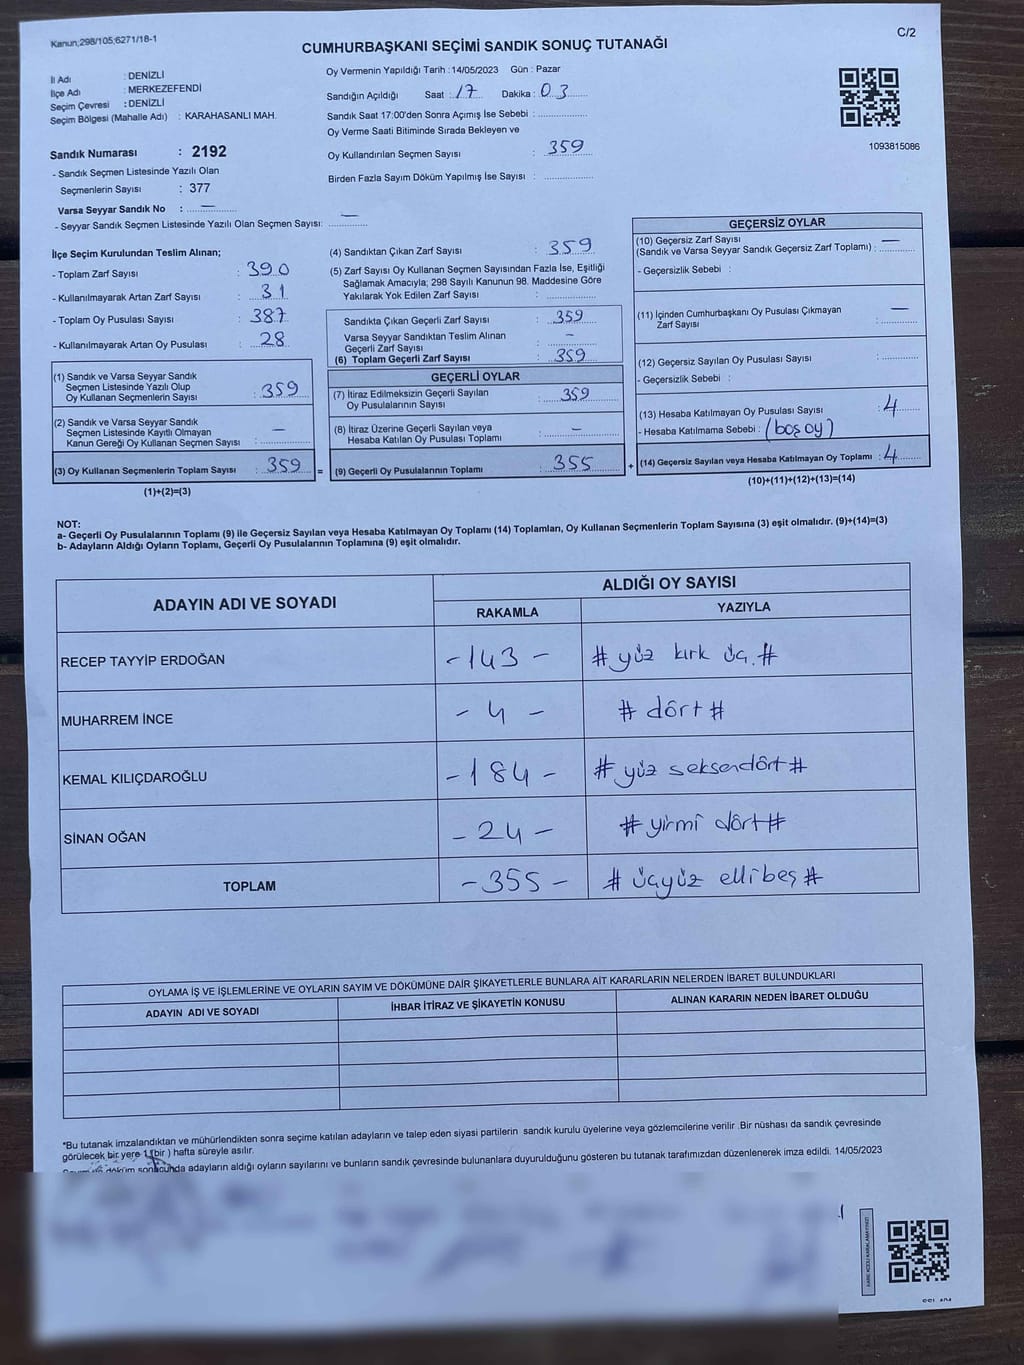 Kanun;298/105;6271/18-1
C/2
CUMHURBAŞKANI SEÇİMİ SANDIK SONUÇ TUTANAĞI
İl Adı : DENİZLİ
İlçe Adı : MERKEZEFENDİ
Seçim Çevresi : DENİZLİ
Seçim Bölgesi (Mahalle Adı) : KARAHASANLI MAH.
Oy Vermenin Yapıldığı Tarih :14/05/2023 Gün : Pazar
Sandığın Açıldığı Saat : 17 Dakika : 03
Sandık Saat 17:00'den Sonra Açımış İse Sebebi :
Oy Verme Saati Bitiminde Sırada Bekleyen ve
Oy Kullandırılan Seçmen Sayısı : 359
Birden Fazla Sayım Döküm Yapılmış İse Sayısı :
1093815086
Sandık Numarası : 2192
- Sandık Seçmen Listesinde Yazılı Olan
Seçmenlerin Sayısı : 377
Varsa Seyyar Sandık No : —
- Seyyar Sandık Seçmen Listesinde Yazılı Olan Seçmen Sayısı: —
İlçe Seçim Kurulundan Teslim Alınan;
- Toplam Zarf Sayısı : 390
- Kullanılmayarak Artan Zarf Sayısı : 31
- Toplam Oy Pusulası Sayısı : 387
- Kullanılmayarak Artan Oy Pusulası : 28
(1) Sandık ve Varsa Seyyar Sandık
Seçmen Listesinde Yazılı Olup
Oy Kullanan Seçmenlerin Sayısı : 359
(2) Sandık ve Varsa Seyyar Sandık
Seçmen Listesinde Kayıtlı Olmayan
Kanun Gereği Oy Kullanan Seçmen Sayısı : —
(3) Oy Kullanan Seçmenlerin Toplam Sayısı : 359 =
(1)+(2)=(3)
(4) Sandıktan Çıkan Zarf Sayısı : 359
(5) Zarf Sayısı Oy Kullanan Seçmen Sayısından Fazla İse, Eşitliği
Sağlamak Amacıyla; 298 Sayılı Kanunun 98. Maddesine Göre
Yakılarak Yok Edilen Zarf Sayısı :
Sandıkta Çıkan Geçerli Zarf Sayısı : 359
Varsa Seyyar Sandıktan Teslim Alınan
Geçerli Zarf Sayısı : —
(6) Toplam Geçerli Zarf Sayısı : 359
GEÇERLİ OYLAR
(7) İtiraz Edilmeksizin Geçerli Sayılan
Oy Pusulalarının Sayısı : 359
(8) İtiraz Üzerine Geçerli Sayılan veya
Hesaba Katılan Oy Pusulası Toplamı : —
(9) Geçerli Oy Pusulalarının Toplamı : 355 +
GEÇERSİZ OYLAR
(10) Geçersiz Zarf Sayısı
(Sandık ve Varsa Seyyar Sandık Geçersiz Zarf Toplamı) : —
- Geçersizlik Sebebi :
(11) İçinden Cumhurbaşkanı Oy Pusulası Çıkmayan
Zarf Sayısı : —
(12) Geçersiz Sayılan Oy Pusulası Sayısı :
- Geçersizlik Sebebi :
(13) Hesaba Katılmayan Oy Pusulası Sayısı : 4
- Hesaba Katılmama Sebebi : (boş oy)
(14) Geçersiz Sayılan veya Hesaba Katılmayan Oy Toplamı : 4
(10)+(11)+(12)+(13)=(14)
NOT:
a- Geçerli Oy Pusulalarının Toplamı (9) ile Geçersiz Sayılan veya Hesaba Katılmayan Oy Toplamı (14) Toplamları, Oy Kullanan Seçmenlerin Toplam Sayısına (3) eşit olmalıdır. (9)+(14)=(3)
b- Adayların Aldığı Oyların Toplamı, Geçerli Oy Pusulalarının Toplamına (9) eşit olmalıdır.
ADAYIN ADI VE SOYADI ALDIĞI OY SAYISI
RAKAMLA YAZIYLA
RECEP TAYYİP ERDOĞAN -143- # yüz kırk üç. #
MUHARREM İNCE -4- # dört #
KEMAL KILIÇDAROĞLU -184- # yüz seksendört #
SİNAN OĞAN -24- # yirmi dört #
TOPLAM -355- # üçyüz ellibeş #
OYLAMA İŞ VE İŞLEMLERİNE VE OYLARIN SAYIM VE DÖKÜMÜNE DAİR ŞİKAYETLERLE BUNLARA AİT KARARLARIN NELERDEN İBARET BULUNDUKLARI
ADAYIN ADI VE SOYADI İHBAR İTİRAZ VE ŞİKAYETİN KONUSU ALINAN KARARIN NEDEN İBARET OLDUĞU
*Bu tutanak imzalandıktan ve mühürlendikten sonra seçime katılan adayların ve talep eden siyasi partilerin sandık kurulu üyelerine veya gözlemcilerine verilir .Bir nüshası da sandık çevresinde
görülecek bir yere 1 (bir ) hafta süreyle asılır.
döküm sonucunda adayların aldığı oyların sayılarını ve bunların sandık çevresinde bulunanlara duyurulduğunu gösteren bu tutanak tarafımızdan düzenlenerek imza edildi. 14/05/2023